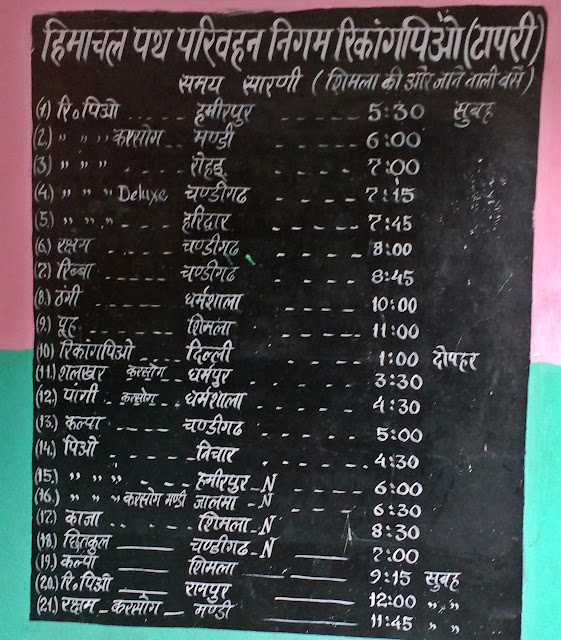 हिमाचल पथ परिवहन निगम रिकांगपिओ (टापरी)
समय सारणी (शिमला की ओर जाने वाली बसें)
(1) रि॰ पिओ ..... हमीरपुर ----- 5:30 सुबह
(2.) " " " करसोग -- मण्डी ----- 6:00
(3) " " " ----- रोहड़ू ----- 7:00
(4.) " " " Deluxe चण्डीगढ ----- 7:15
(5.) " " " ----- हरिद्वार ----- 7:45
(6.) रक्षम ----- चण्डीगढ ----- 8:00
(7.) रिब्बा ----- चण्डीगढ ----- 8:45
(8.) ठंगी ----- धर्मशाला ----- 10:00
(9.) पूह ----- शिमला ----- 11:00
(10) रिकांगपिओ .... दिल्ली ----- 1:00 दोपहर
(11.) शलखर करसोग -- धर्मपुर ----- 3:30
(12.) पांगी - करसोग -- धर्मशाला ----- 4:30
(13.) कल्पा ----- चण्डीगढ ----- 5:00
(14.) पिओ ----- निचार ----- 4:30
(15.) " " " ----- हमीरपुर - N ----- 6:00
(16.) " " " करसोग मण्डी जालमा - N ----- 6:30
(17.) काजा ----- शिमला - N ----- 8:30
(18.) छितकुल —— चण्डीगढ - N —— 7:00
(19.) कल्पा —— शिमला —— 9:15 सुबह
(20.) रि॰ पिओ —— रामपुर —— 12:00 " "
(21.) रक्षम - करसोग - मण्डी —— 11:45 " "